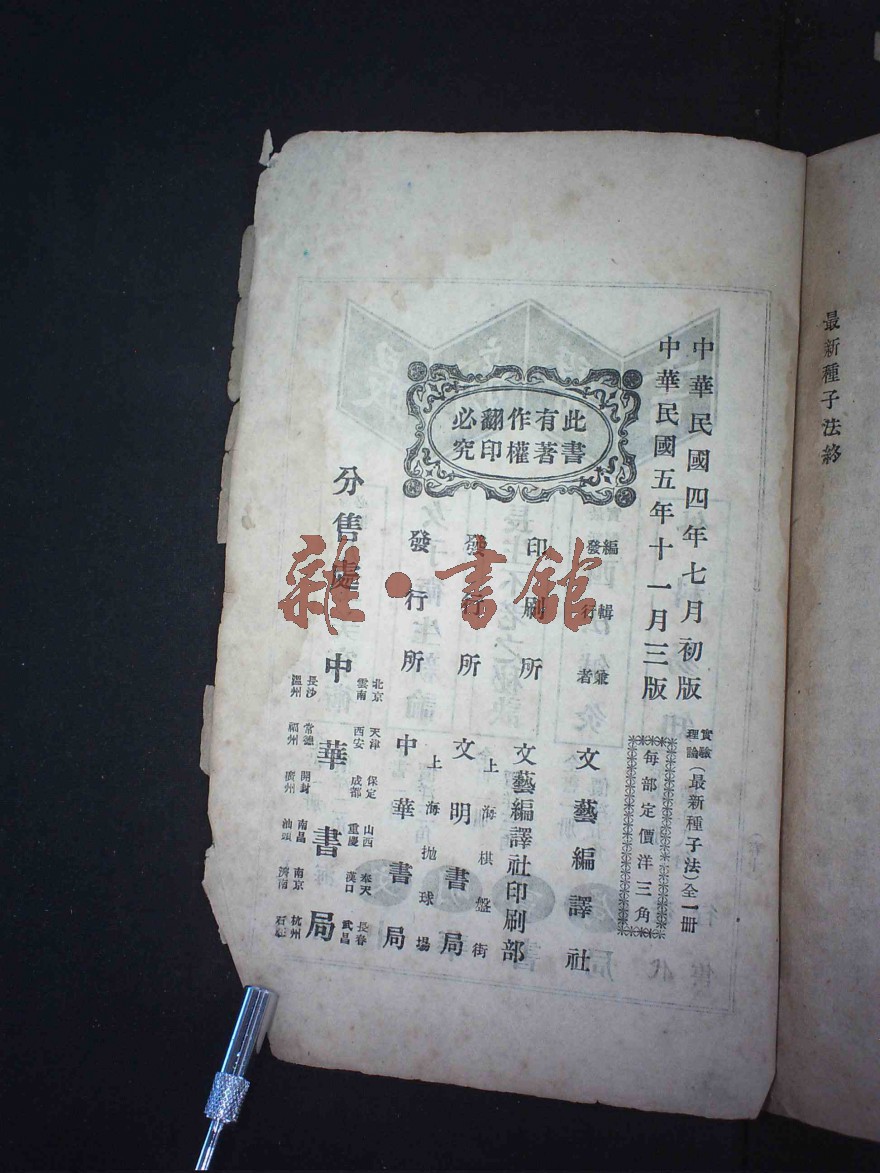 最新種子法終
中華民國四年七月初版
中華民國五年十一月三版
此書有著作權翻印必究
實驗理論(最新種子法)全一冊
每部定價洋三角
編輯兼發行者 文藝編譯社
印刷所 文藝編譯社印刷部
上海棋盤街
發行所 文明書局
上海拋球場
發行所 中華書局
分售處 中華書局
北京 天津 保定 山西 奉天 長春
雲南 西安 成都 重慶 漢口 武昌
長沙 常德 開封 南昌 南京 杭州
溫州 福州 廣州 汕頭 濟南
雜·書館